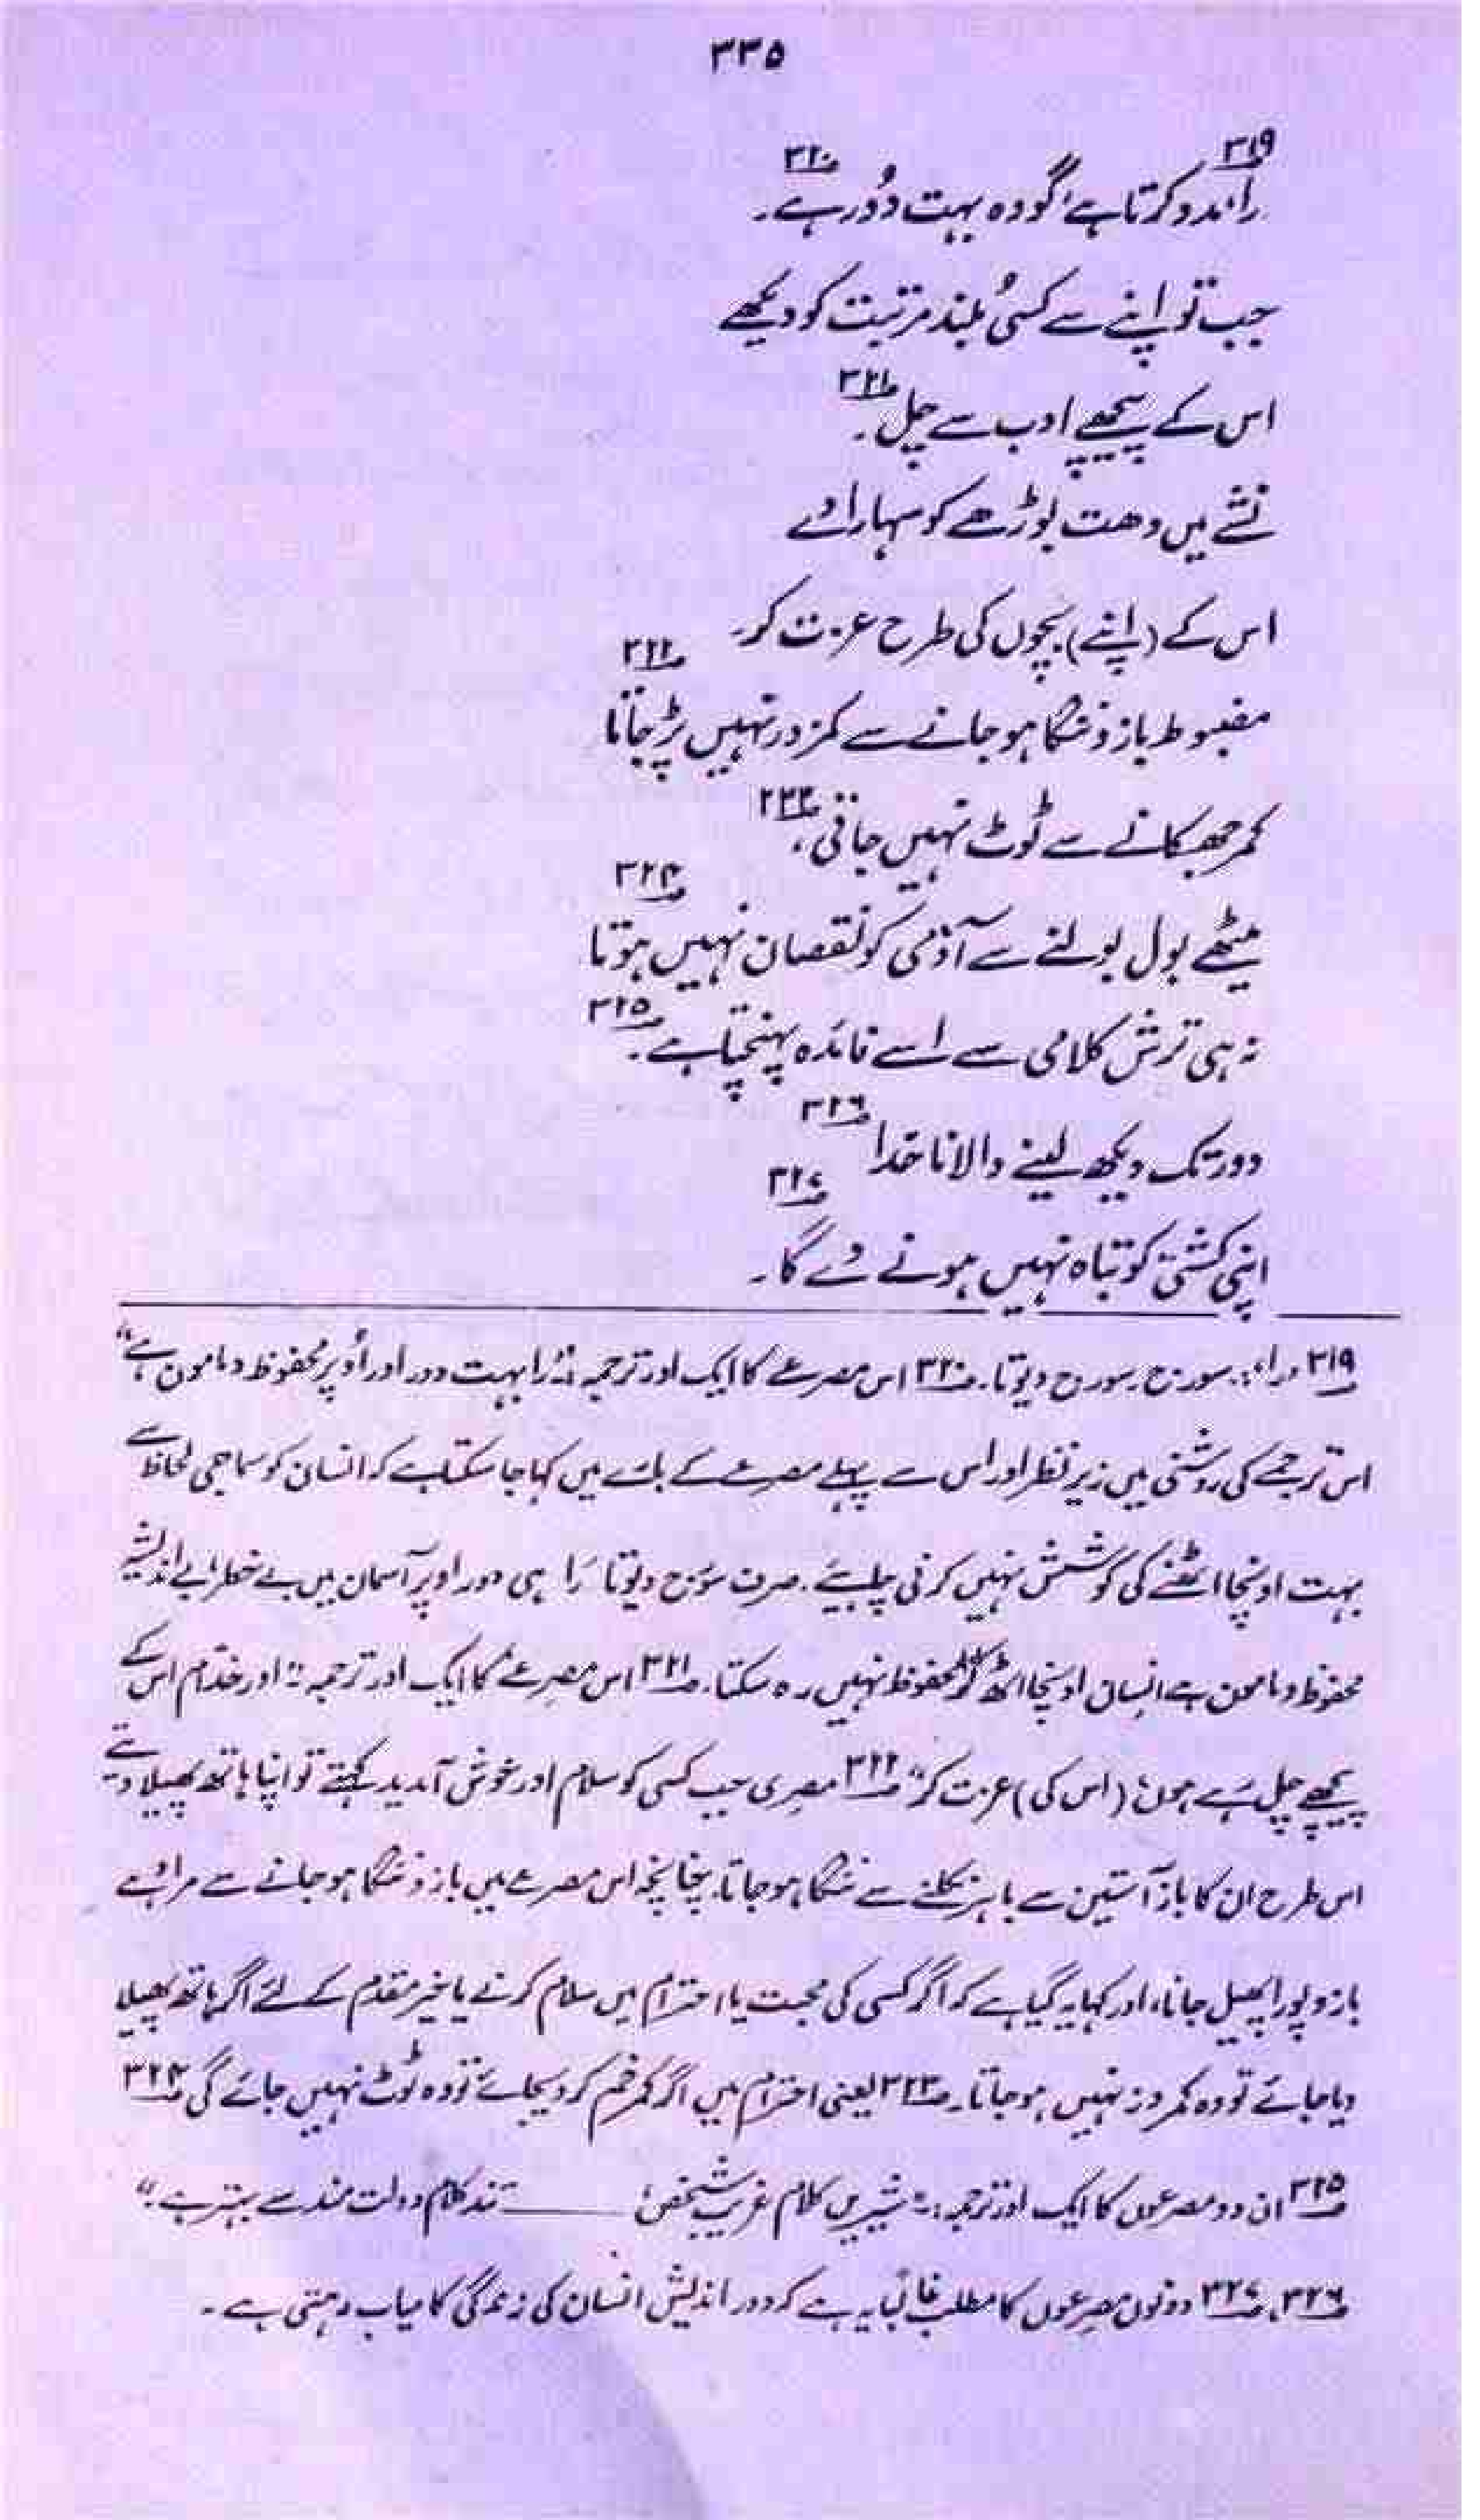 ۳۳۵
را۳۱۹ مدد کرتا ہے گو وہ بہت دُور ہے۔۳۲۰
جب تو اپنے سے کسی بلند مرتبت کو دیکھے
اس کے پیچھے ادب سے چل۔۳۲۱
نشے میں دھت بوڑھے کو سہارا دے
اس کے (اپنے) بچوں کی طرح عزت کر۔
مضبوط بازو ننگا ہو جانے سے کمزور نہیں پڑ جاتا۳۲۲
کمر جھکانے سے ٹوٹ نہیں جاتی،۳۲۳
میٹھے بول بولنے سے آدمی کو نقصان نہیں ہوتا۳۲۴
نہ ہی ترش کلامی سے اسے فائدہ پہنچتا ہے۔۳۲۵
دور تک دیکھ لینے والا ناخدا۳۲۶
اپنی کشتی کو تباہ نہیں ہونے دے گا۔۳۲۷
۳۱۹ را،: سورج۔ سورج دیوتا۔ ۳۲۰ اس مصرعے کا ایک اور ترجمہ: "را بہت دور اور اُوپر محفوظ و مامون ہے"
اس ترجمے کی روشنی میں زیر نظر اور اس سے پہلے مصرعے کے بارے میں کہا جا سکتا ہے کہ انسان کو سماجی لحاظ سے
بہت اونچا اٹھنے کی کوشش نہیں کرنی چاہیئے۔ صرف سورج دیوتا را ہی دور اوپر آسمان میں بے خطر بے اندیشہ
محفوظ و مامون ہے انسان اونچا اٹھ کر محفوظ نہیں رہ سکتا۔ ۳۲۱ اس مصرعے کا ایک اور ترجمہ: "اور خدام اس کے
پیچھے چل رہے ہوں (اس کی) عزت کر" ۳۲۲ مصری جب کسی کو سلام اور خوش آمدید کہتے تو اپنا ہاتھ پھیلا دیتے
اس طرح ان کا بازو آستین سے باہر نکلنے سے ننگا ہو جاتا، چنانچہ اس مصرعے میں بازو ننگا ہو جانے سے مراد ہے
بازو پورا پھیل جانا، اور کہا یہ گیا ہے کہ اگر کسی کی محبت یا احترام میں سلام کرنے یا خیر مقدم کے لئے اگر ہاتھ پھیلا
دیا جائے تو وہ کمزور نہیں ہو جاتا۔ ۳۲۳ یعنی احترام میں اگر کمر خم کر دی جائے تو وہ ٹوٹ نہیں جائے گی ۳۲۴
۳۲۵ ان دو مصرعوں کا ایک اور ترجمہ: "شیریں کلام غریب شخص، ——— تند کلام دولت مند سے بہتر ہے۔"
۳۲۶، ۳۲۷ دونوں مصرعوں کا مطلب غالباً یہ ہے کہ دور اندیش انسان کی زندگی کامیاب رہتی ہے۔